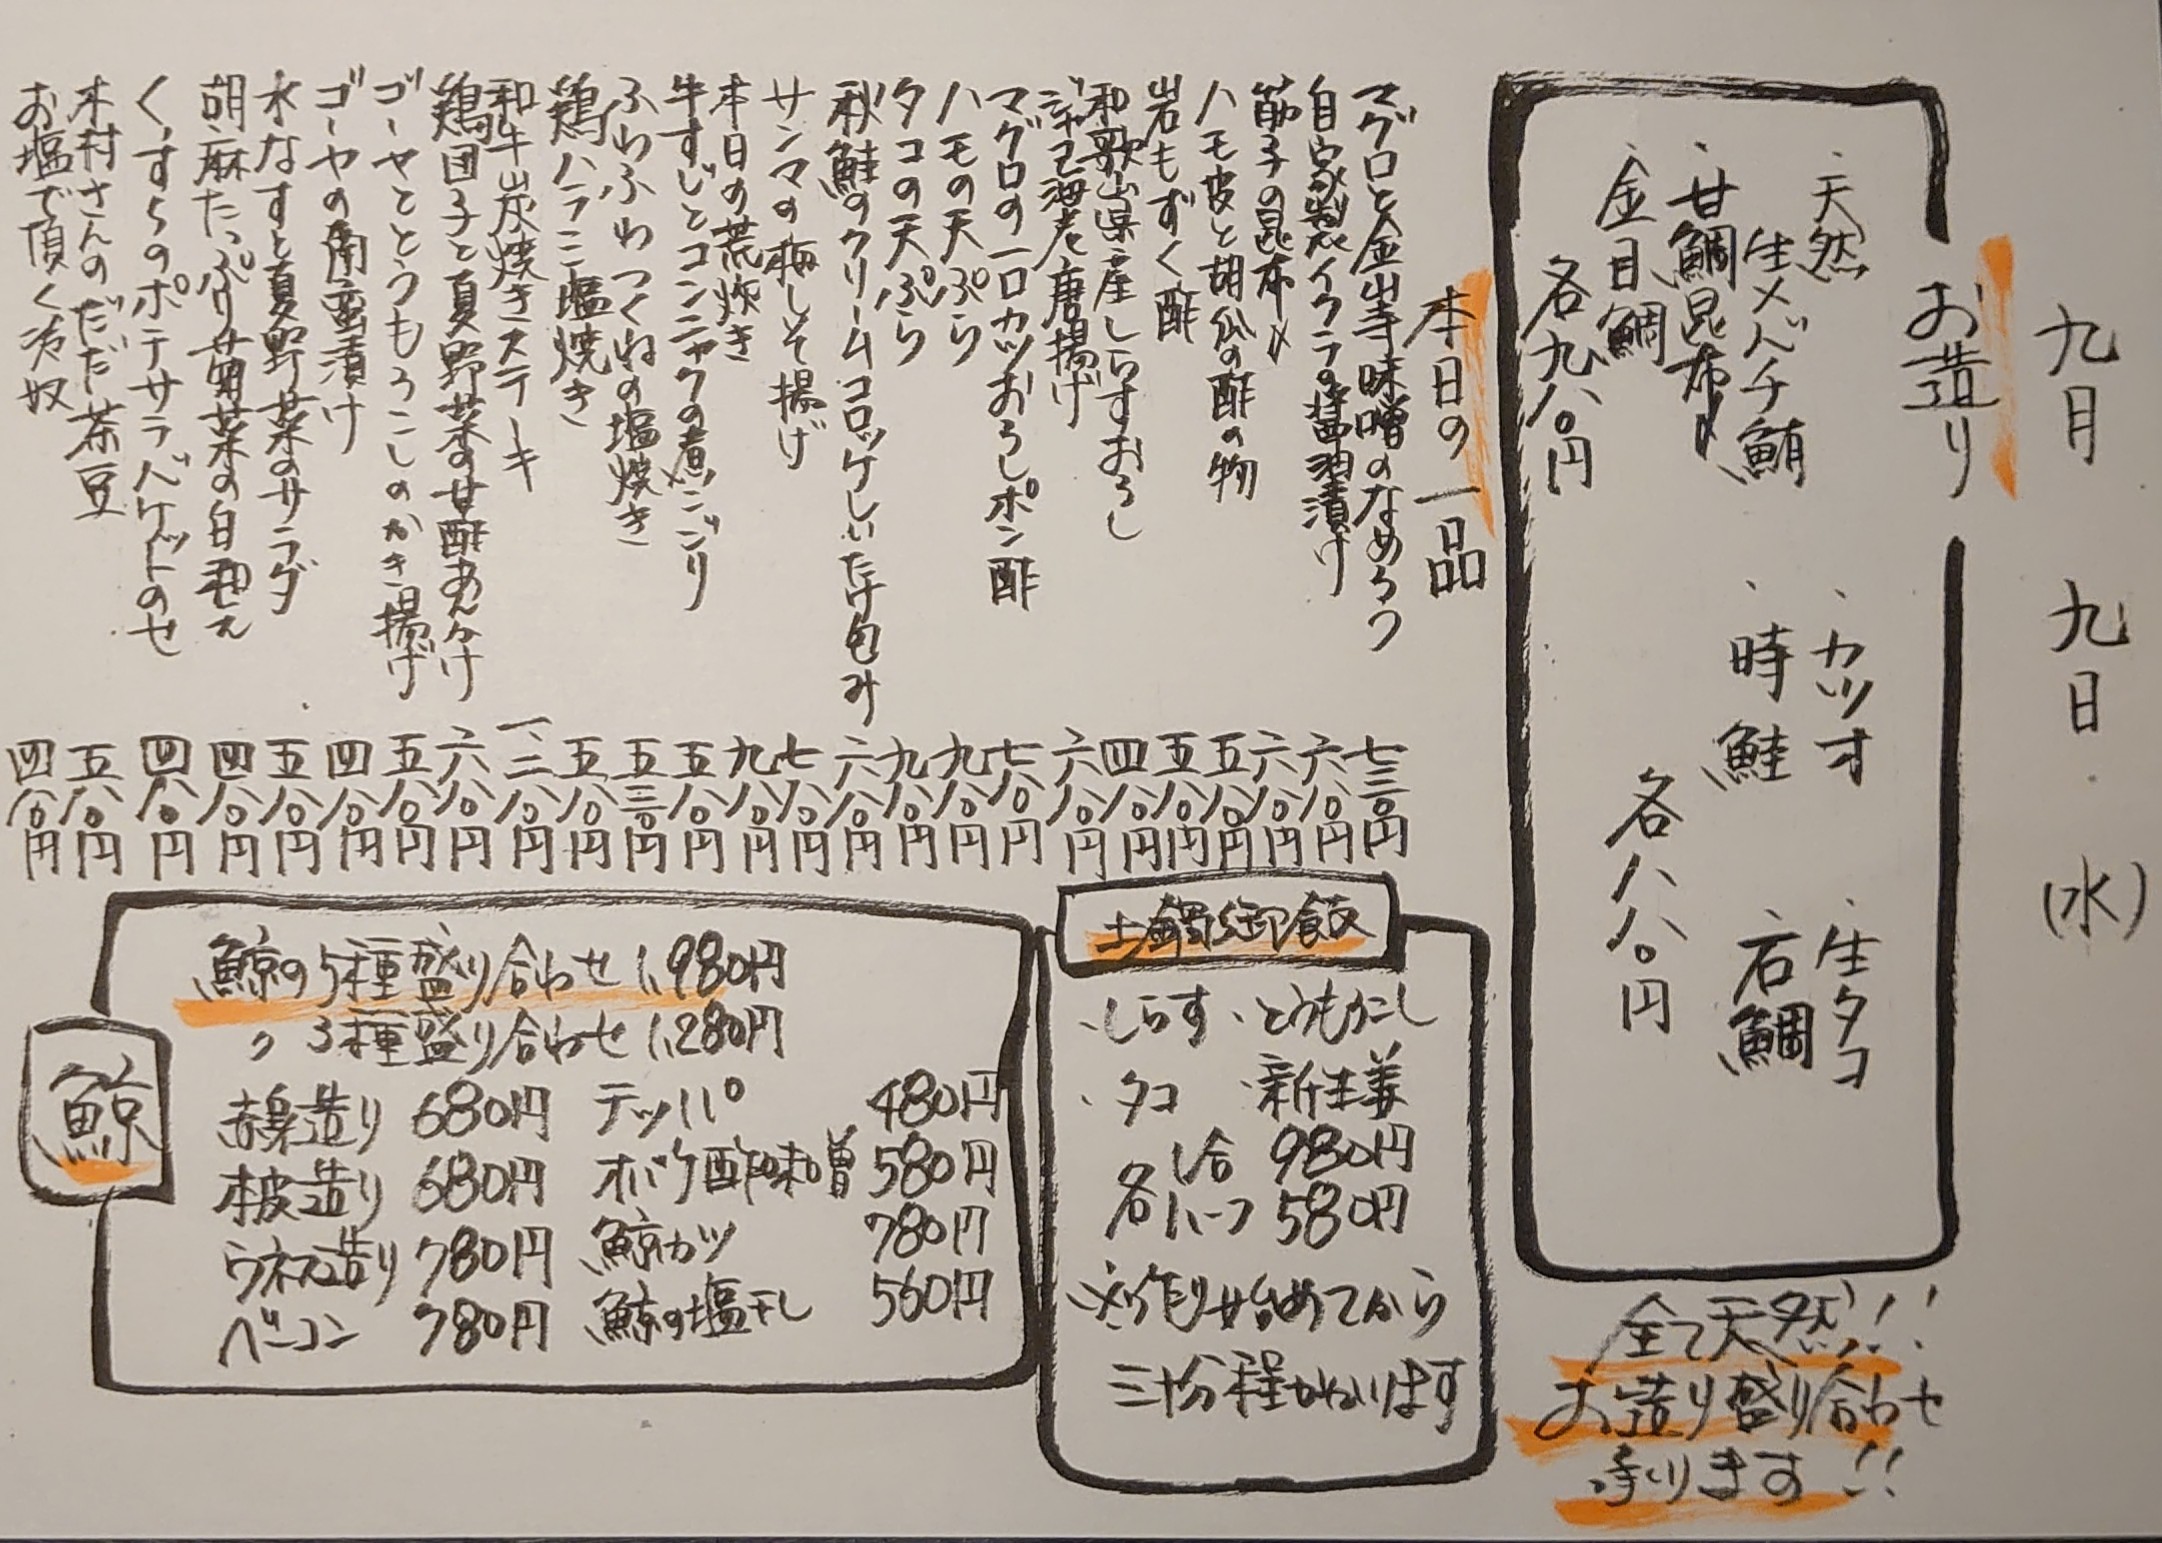 九月九日(水)
お造り
・天然生メバチ鮪
・甘鯛昆布〆
・金目鯛
各九八〇円
・カツオ
・時鮭
・生タコ
・石鯛
各八八〇円
全て天然!!
お造り盛り合わせ
承ります!!
本日の一品
マグロと金山寺味噌のなめろう 七三〇円
自家製イクラの醤油漬け 六八〇円
筋子の昆布〆 六八〇円
ハモ皮と胡瓜の酢の物 五八〇円
岩もずく酢 五八〇円
和歌山県産しらすおろし 四八〇円
海老唐揚げ 六八〇円
マグロの一口カツおろしポン酢 七八〇円
ハモの天ぷら 九八〇円
タコの天ぷら 九八〇円
秋鮭のクリームコロッケしいたけ包み 六八〇円
サンマの梅しそ揚げ 七八〇円
本日の荒炊き 九八〇円
牛すじとコンニャクの煮こごり 五八〇円
ふわふわつくねの塩焼き 五三〇円
鶏ハラミ塩焼き 五八〇円
和牛炭焼きステーキ 一、二八〇円
鶏団子と夏野菜の甘酢あんかけ 六八〇円
ゴーヤととうもろこしのかき揚げ 五八〇円
ゴーヤの南蛮漬け 四八〇円
水なすと夏野菜のサラダ 五八〇円
胡麻たっぷり菊菜の白和え 四八〇円
くずらのポテサラバケットのせ 四八〇円
木村さんのだだ茶豆 五八〇円
お塩で頂く冷奴 四八〇円
土鍋御飯
・しらす ・とうもろこし
・タコ ・新生姜
各 1合 980円
ハーフ 580円
※作り始めてから
三十分程かかります
鯨
鯨の5種盛り合わせ 1,980円
〃 3種盛り合わせ 1,280円
赤身造り 680円 テッパ 480円
本皮造り 680円 オバケ酢味噌 580円
ウネス造り 780円 鯨カツ 780円
ベーコン 780円 鯨の塩干し 560円